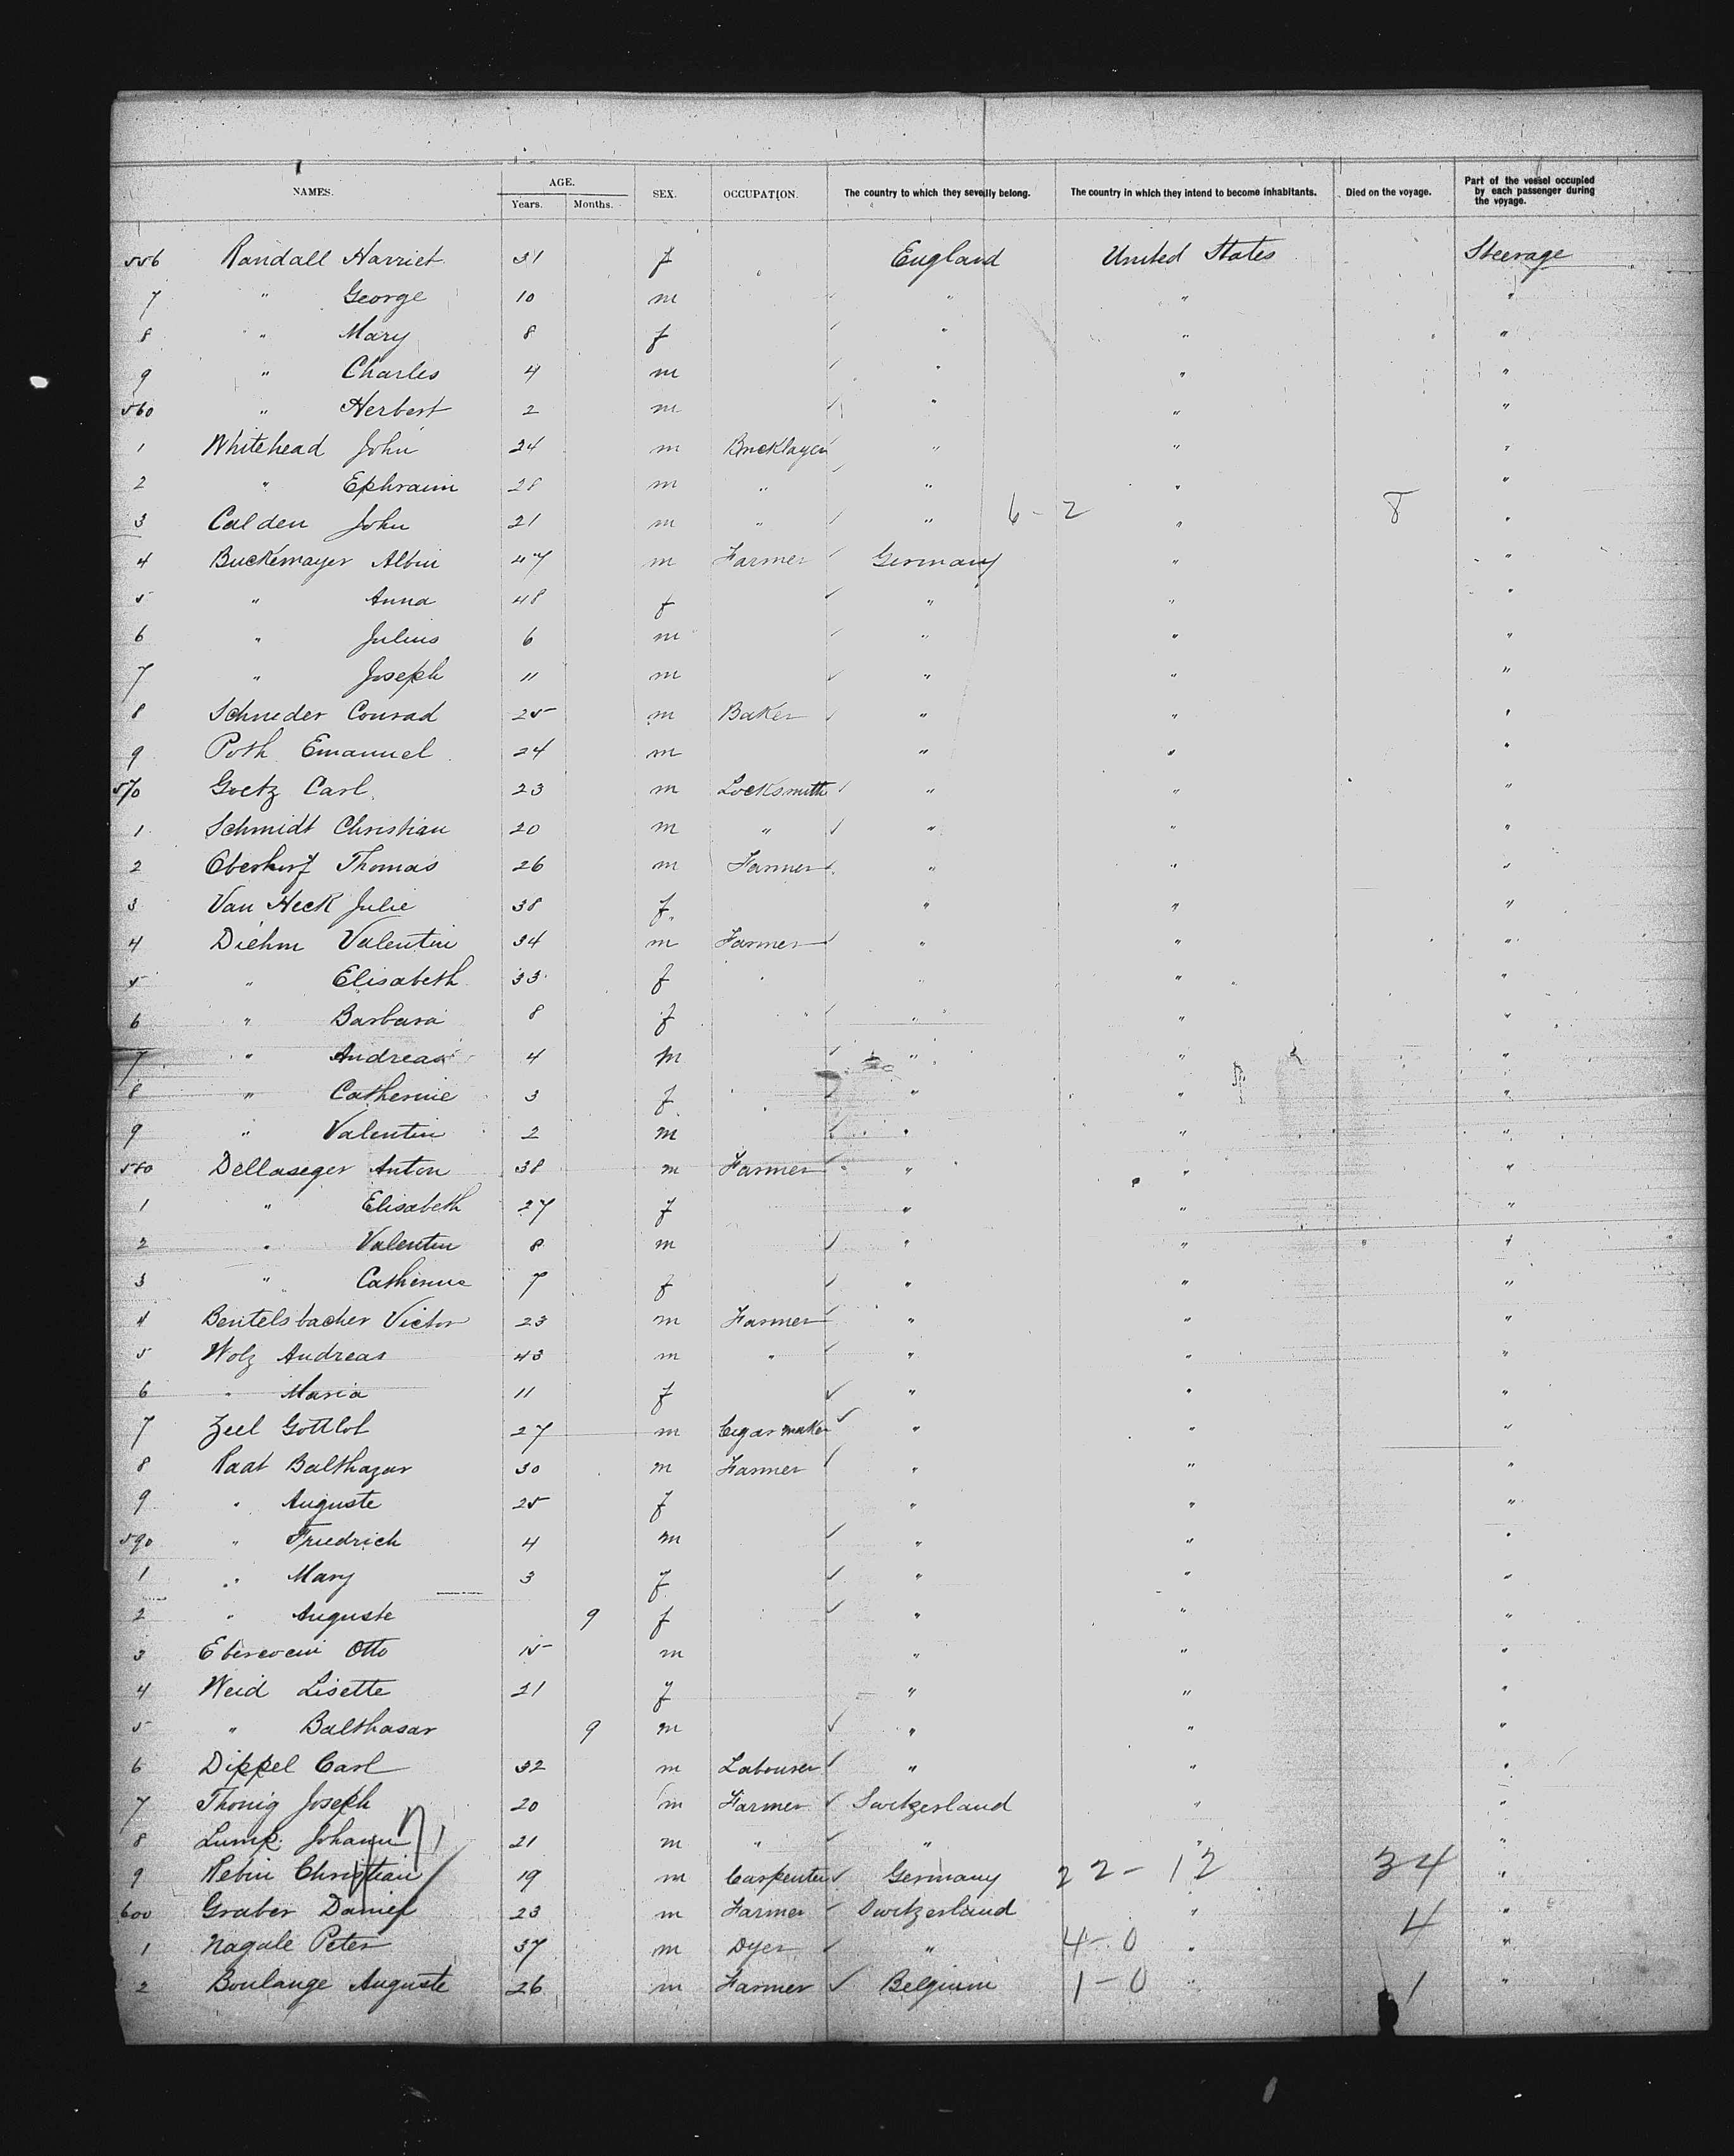 NAMES. AGE. Years. Months. SEX. OCCUPATION. The country to which they severlly belong. The country in which they intend to become inhabitants. Died on the voyage. Part of the vessel occupied by each passenger during the voyage.
556 Randall Harriet 31 f England United States Steerage
7 " George 10 m " " "
8 " Mary 8 f " " "
9 " Charles 4 m " " "
560 " Herbert 2 m " " "
1 Whitehead John 24 m Bricklayer " " "
2 " Ephraim 28 m " " " "
3 Calden John 21 m " " 6-2 " 8 "
4 Buckemayer Albin 47 m Farmer Germany " "
5 " Anna 48 f " " "
6 " Julius 6 m " " "
7 " Joseph 11 m " " "
8 Schneder Conrad 25 m Baker " " "
9 Poth Emanuel 24 m " " "
570 Goetz Carl 23 m Locksmith " " "
1 Schmidt Christian 20 m " " " "
2 Thomas 26 m Farmer " " "
3 Van Heck Julie 38 f " " "
4 Diehm Valentin 34 m Farmer " " "
5 " Elisabeth 33 f " " "
6 " Barbara 8 f " " "
7 " Andreas 4 m " " "
8 " Catherine 3 f " " "
9 " Valentin 2 m " " "
580 Dellaseger Anton 38 m Farmer " " "
1 " Elisabeth 27 f " " "
2 " Valentin 8 m " " "
3 " Catherine 7 f " " "
4 Bentelsbacher Victor 23 m Farmer " " "
5 Wolz Andreas 43 m " " " "
6 " Maria 11 f " " "
7 Zeel Gottlob 27 m Cigar maker " " "
8 Raat Balthazar 30 m Farmer " " "
9 " Auguste 25 f " " "
590 " Friedrich 4 m " " "
1 " Mary 3 f " " "
2 " Auguste 9 f " " "
3 Otto 15 m " " "
4 Weid Lisette 21 f " " "
5 " Balthasar 9 m " " "
6 Dippel Carl 32 m Labourer " " "
7 Thonig Joseph 20 m Farmer Switzerland " "
8 Lump Johann 21 m " " " "
9 Rebin Christian 19 m Carpenter Germany 22-12 34 "
600 Graber Daniel 23 m Farmer Switzerland " "
1 Nagale Peter 37 m Dyer " 4-0 " 4 "
2 Boulange Auguste 26 m Farmer Belgium 1-0 " 1 "